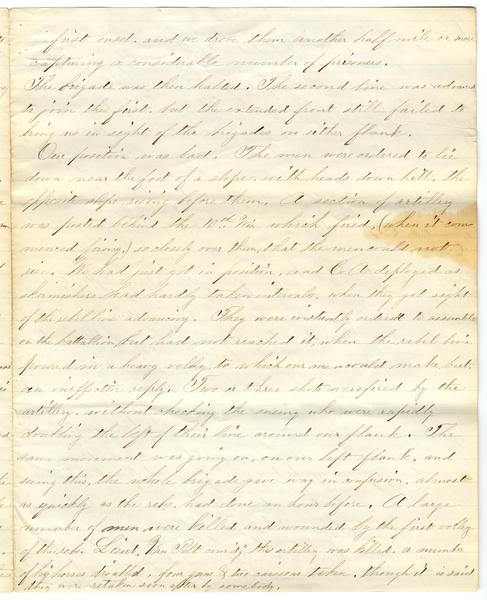 first onset. and we drove them another half mile or more
capturing a considerable number of prisoners.
The brigade was then halted. The second line was advanced
to join the first, but the extended front still failed to
bring us in sight of the brigades on either flank.
Our position was bad. The men were ordered to lie
down near the foot of a slope, with heads down hill, the
opposite slope rising before them. A section of artillery
was posted behind the 10th Wis which fired, (when it com
menced firing,) so closely over them, that the men could not
rise. We had just got in position, and Co. A deployed as
skirmishers, had hardly taken intervals, when they got sight
of the rebel line advancing. They were instantly ordered to assemble
on the battalion, but had not reached it, when the rebel line
poured in a heavy volley, to which our men could make but
an ineffective reply. Two or three shots were fired by the
artillery. without checking the enemy who were rapidly
doubling the left of their line around our flank. The
same movement was going on, on our left flank, and
seeing this, the whole brigade gave way in confusion, almost
as quickly as the rebs. had done an hour before. A large
number of men were killed and wounded by the first volley
of the rebs. Lieut. Van Pelt comdg the artillery was killed, a number
of his horses disabled, four guns & two caissons taken, though it is said
they were retaken soon after by somebody.